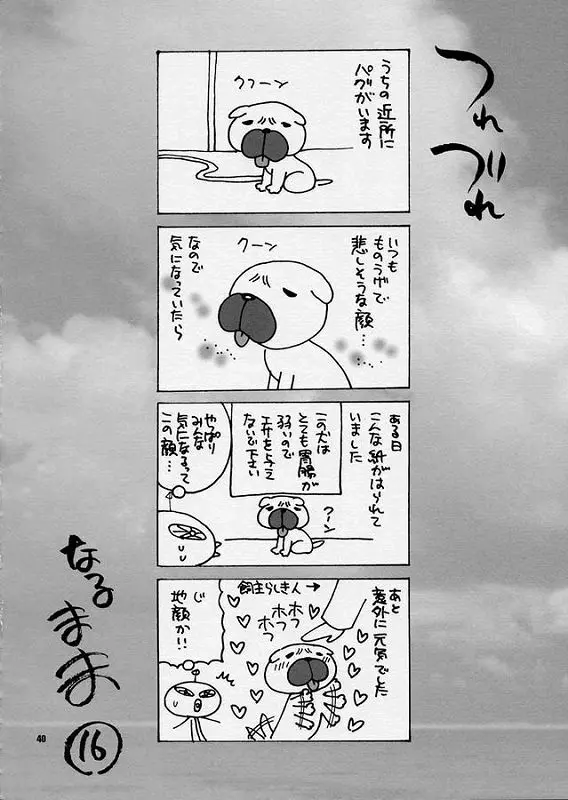 つれ
づれ
うちの近所に
パグがいます
クフーン
いつも
ものうげで
悲しそうな顔…
クーン
なので
気になっていたら
ある日
こんな紙がはられて
いました
この犬は
とても胃腸が
弱いので
エサを与え
ないで下さい
クーン
やっぱり
みんな
気になるって
この顔…
あと
意外に元気でした
飼主らしき人→
ホフ
ホフ
ホフ
じ
地顔か!!
なる
まま
16
40